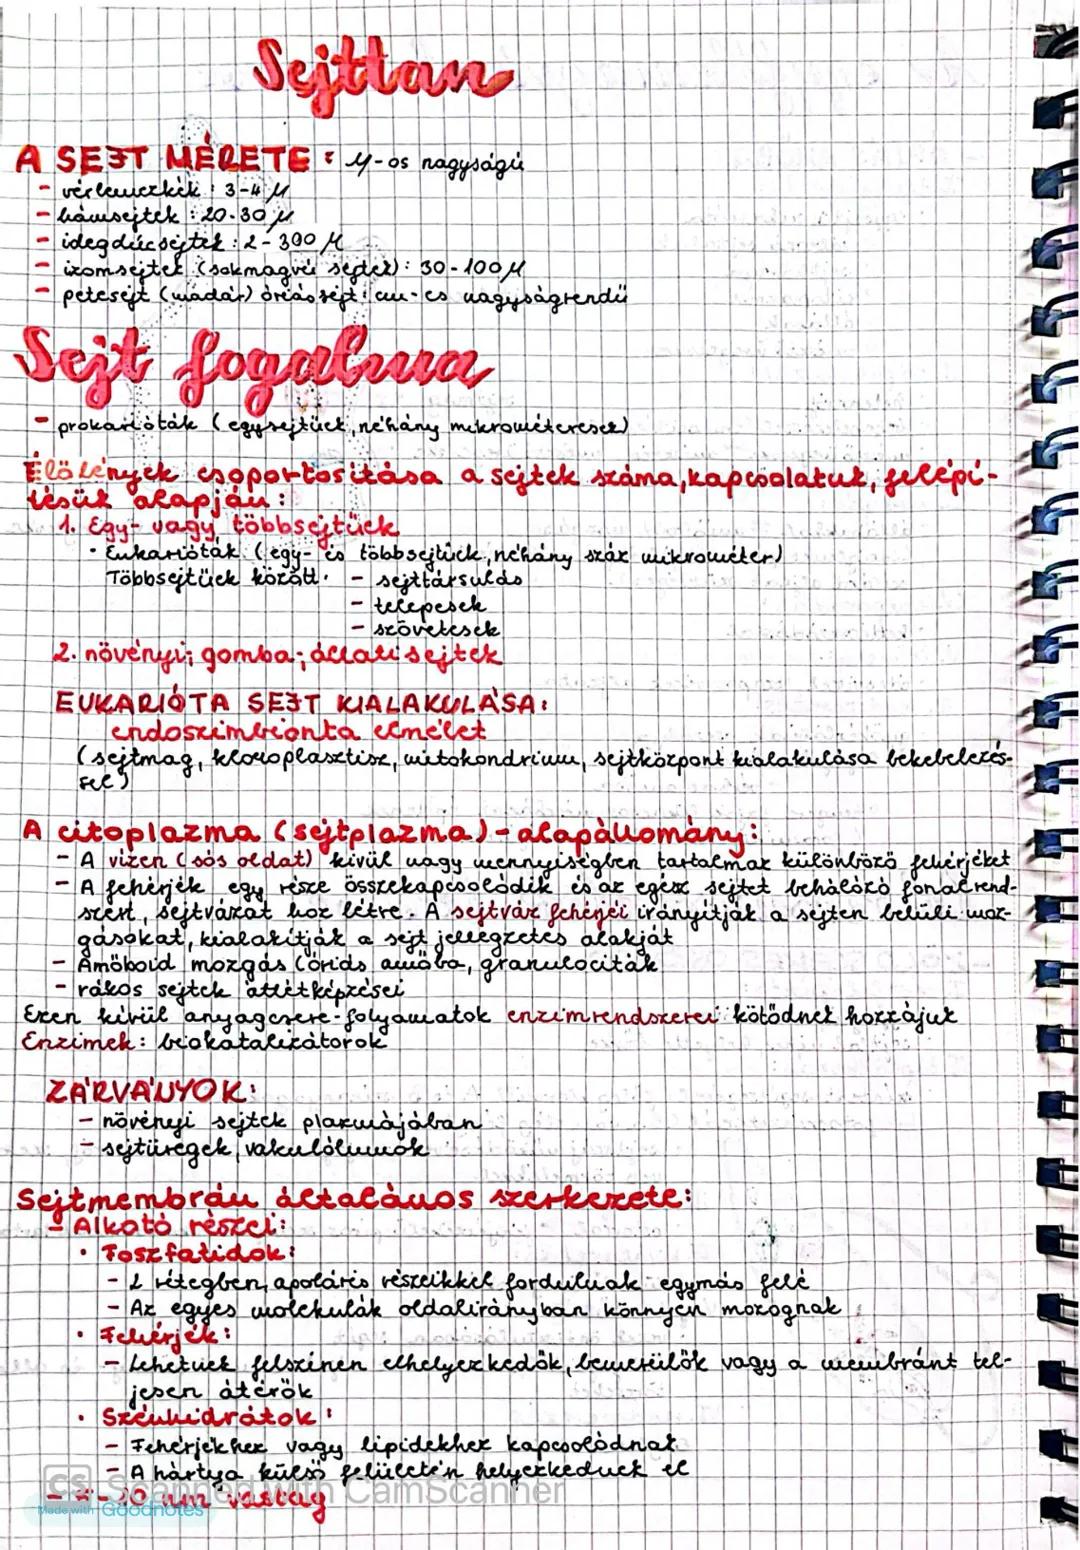 Sejttan
A SEJT MÉRETE : μ-os nagyságú
- vérlemezkék : 3-4 μ
- hámsejtek : 20-30 μ
- idegdúcsejtek : 2-300 μ
- izomsejtek (sokmagvú sejtek) : 30-100 μ
- petesejt (madár) óriássejt : cm-es nagyságrendű
Sejt fogalma
- prokarióták (egysejtűek, néhány mikrométeresek)
Élőlények csoportosítása a sejtek száma, kapcsolatuk, felépí-
tésük alapján :
1. Egy- vagy többsejtűek
• Eukarióták (egy- és többsejtűek, néhány száz mikrométer)
Többsejtűek között : - sejttársulás
- telepesek
- szövetesek
2. növényi; gomba-; állati sejtek
EUKARIÓTA SEJT KIALAKULÁSA :
endoszimbionta elmélet
(sejtmag, kloroplasztisz, mitokondrium, sejtközpont kialakulása bekebelezés-
sel)
A citoplazma (sejtplazma) - alapállomány :
- A vízen (sós oldat) kívül nagy mennyiségben tartalmaz különböző fehérjéket
- A fehérjék egy része összekapcsolódik és az egész sejtet behálózó fonalrend-
szert, sejtvázat hoz létre. A sejtváz fehérjéi irányítják a sejten belüli moz-
gásokat, kialakítják a sejt jellegzetes alakját
- Amöboid mozgás (óriás amőba, granulociták
- rákos sejtek áttétképzései
Ezen kívül anyagcsere-folyamatok enzimrendszerei kötődnek hozzájuk
Enzimek : biokatalizátorok
ZÁRVÁNYOK :
- növényi sejtek plazmájában
- sejtüregek, vakuólumok
Sejtmembrán általános szerkezete :
- Alkotó részei :
• Foszfatidok :
- 2 rétegben, apoláris részeikkel fordulnak egymás felé
- Az egyes molekulák oldalirányban könnyen mozognak
• Fehérjék :
- Lehetnek felszínen elhelyezkedők, bemerülők vagy a membránt tel-
jesen átérők
• Szénhidrátok :
- Fehérjékhez vagy lipidekhez kapcsolódnak
- A hártya külső felületén helyezkednek el
-10 nm vastag
CS Scanned with CamScanner
Made with Goodnotes